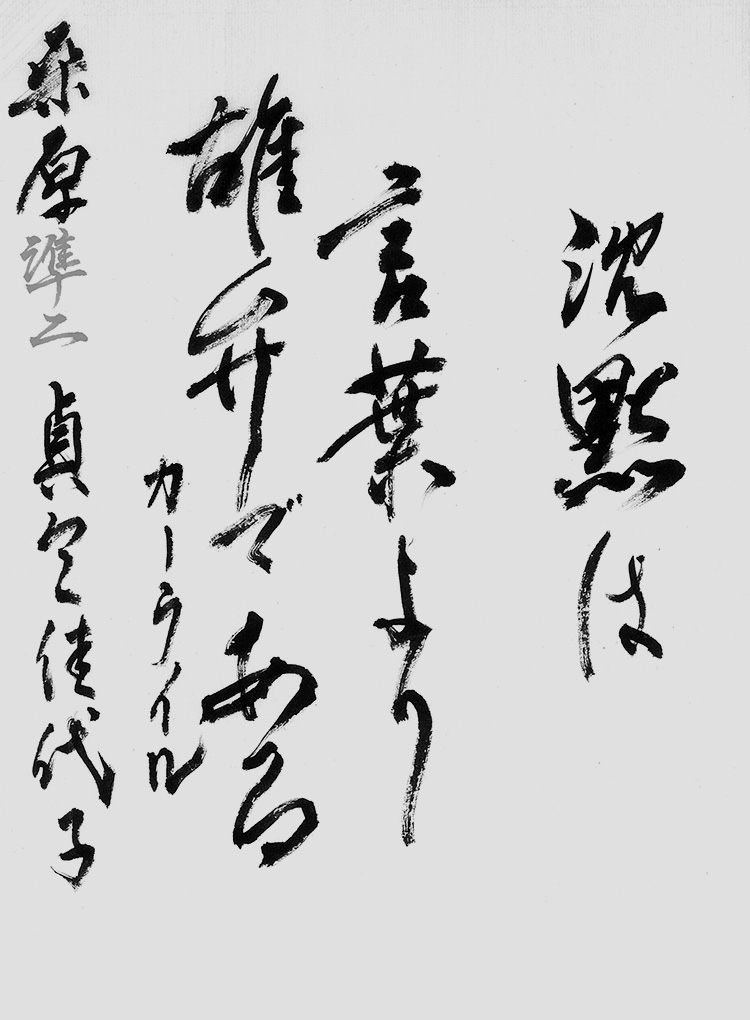 沈默は
言葉より
雄弁である
カーライル
桑原準二 貞包佳代子